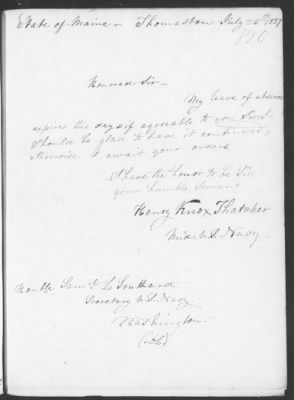 State of Maine - Thomaston July 25th 1827
Honored Sir -
My leave of absence
expires this day, if agreeable to you Sir I
should be glad to have it continued,
otherwise I await your orders
I have the honor to be Sir
your humble Servant
Henry Knox Thatcher
Mid. U.S. Navy
Honble Saml L Southard
Secretary U.S. Navy
Washington